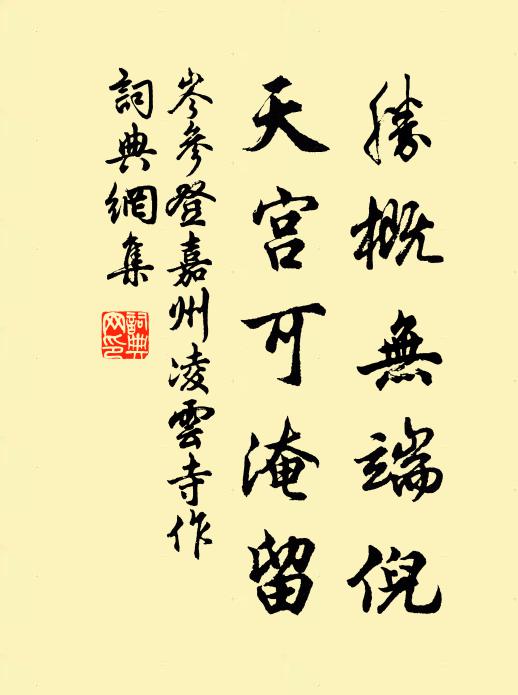 勝概無端倪
天宫可淹留
岑參登嘉州凌雲寺作
詞典網集
詞典網印